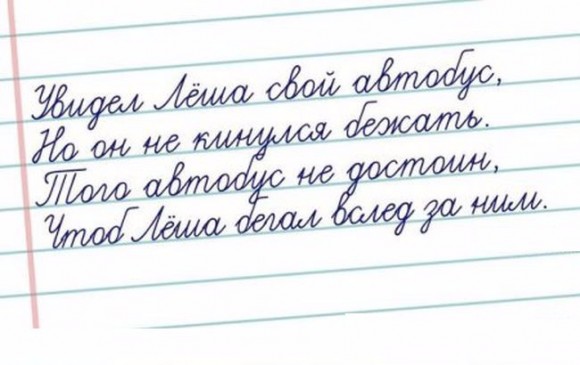 Увидел Лёша свой автобус,
Но он не кинулся бежать.
Того автобус не достоин,
Чтоб Лёша бегал вслед за ним.